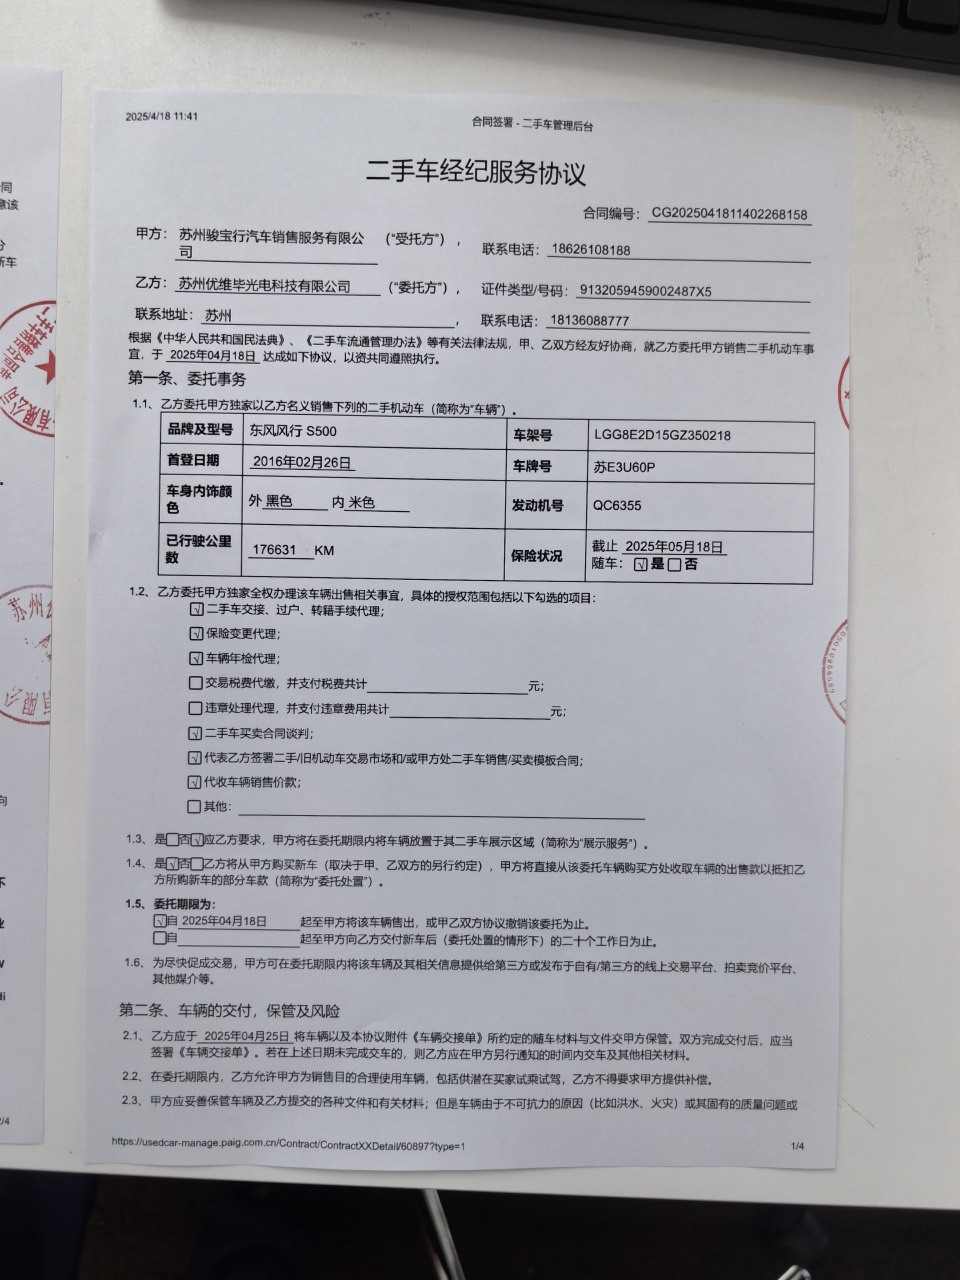 2025/4/18 11:41
合同签署 - 二手车管理后台
二手车经纪服务协议
合同编号： CG2025041811402268158
甲方： 苏州骏宝行汽车销售服务有限公司 （“受托方”），
联系电话： 18626108188
乙方： 苏州优维毕光电科技有限公司 （“委托方”），
证件类型/号码： 9132059459002487X5
联系地址： 苏州 ，
联系电话： 18136088777
根据《中华人民共和国民法典》、《二手车流通管理办法》等有关法律法规，甲、乙双方经友好协商，就乙方委托甲方销售二手机动车事
宜，于 2025年04月18日 达成如下协议，以资共同遵照执行。
第一条、委托事务
1.1、乙方委托甲方独家以乙方名义销售下列的二手机动车（简称为“车辆”）。
品牌及型号 东风风行 S500 车架号 LGG8E2D15GZ350218
首登日期 2016年02月26日 车牌号 苏E3U60P
车身内饰颜色 外 黑色 内 米色 发动机号 QC6355
已行驶公里数 176631 KM 保险状况 截止 2025年05月18日
随车：☑是☐否
1.2、乙方委托甲方独家全权办理该车辆出售相关事宜，具体的授权范围包括以下勾选的项目：
☑二手车交接、过户、转籍手续代理；
☑保险变更代理；
☑车辆年检代理；
☐交易税费代缴，并支付税费共计 元；
☐违章处理代理，并支付违章费用共计 元；
☑二手车买卖合同谈判；
☑代表乙方签署二手/旧机动车交易市场和/或甲方处二手车销售/买卖模板合同；
☑代收车辆销售价款；
☐其他：
1.3、是☐否☑应乙方要求，甲方将在委托期限内将车辆放置于其二手车展示区域（简称为“展示服务”）。
1.4、是☑否☐乙方将从甲方购买新车（取决于甲、乙双方的另行约定），甲方将直接从该委托车辆购买方处收取车辆的出售款以抵扣乙
方所购新车的部分车款（简称为“委托处置”）。
1.5、委托期限为：
☑自 2025年04月18日 起至甲方将该车辆售出，或甲乙双方协议撤销该委托为止。
☐自 起至甲方向乙方交付新车后（委托处置的情形下）的二十个工作日为止。
1.6、为尽快促成交易，甲方可在委托期限内将该车辆及其相关信息提供给第三方或发布于自有/第三方的线上交易平台、拍卖竞价平台、
其他媒介等。
第二条、车辆的交付，保管及风险
2.1、乙方应于 2025年04月25日 将车辆以及本协议附件《车辆交接单》所约定的随车材料与文件交甲方保管。双方完成交付后，应当
签署《车辆交接单》。若在上述日期未完成交车的，则乙方应在甲方另行通知的时间内交车及其他相关材料。
2.2、在委托期限内，乙方允许甲方为销售目的合理使用车辆，包括供潜在买家试乘试驾，乙方不得要求甲方提供补偿。
2.3、甲方应妥善保管车辆及乙方提交的各种文件和有关材料；但是车辆由于不可抗力的原因（比如洪水、火灾）或其固有的质量问题或
https://usedcar-manage.paig.com.cn/Contract/ContractXXDetail/60897?type=1
1/4